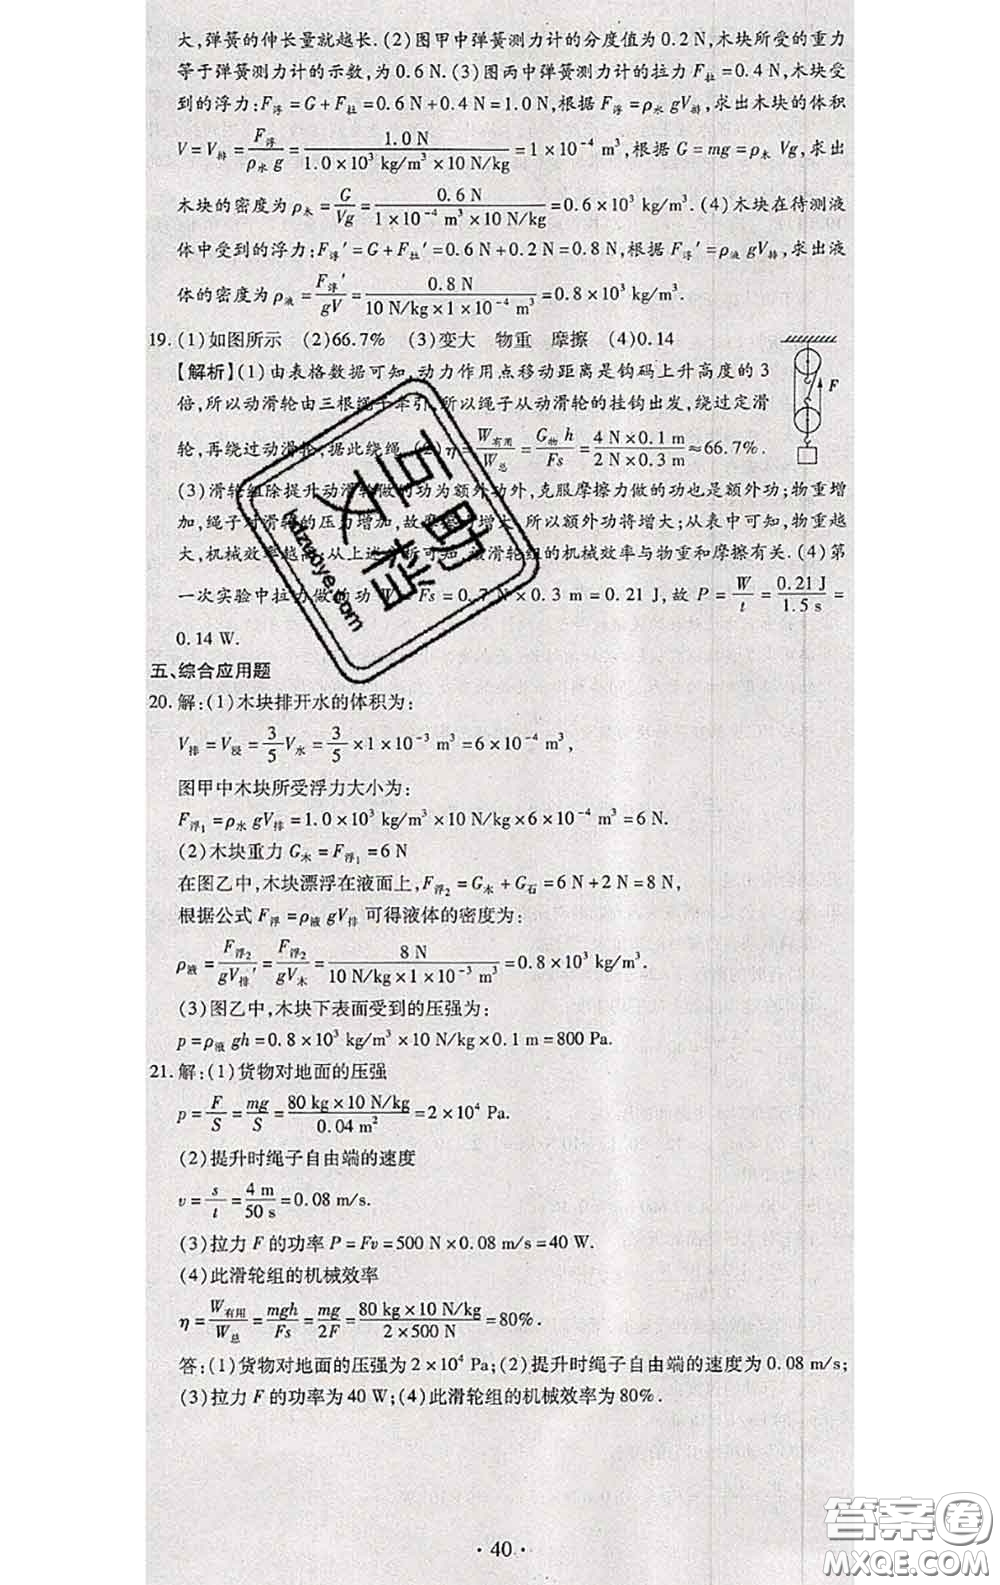 大,弹簧的伸长量就越长.(2)图甲中弹簧测力计的分度值为0.2 N,木块所受的重力
等于弹簧测力计的示数,为0.6 N.(3)图丙中弹簧测力计的拉力F拉=0.4 N,木块受
到的浮力:F浮=G+F拉=0.6 N+0.4 N=1.0 N,根据F浮=ρ水 gV排,求出木块的体积
V=V排=F浮/ρ水 g=1.0 N/1.0×10³ kg/m³×10 N/kg=1×10⁻⁴ m³,根据 G=mg=ρ木 Vg,求出
木块的密度为ρ木=G/Vg=0.6 N/1×10⁻⁴ m³×10 N/kg=0.6×10³ kg/m³.(4)木块在待测液
体中受到的浮力:F浮′=G+F拉′=0.6 N+0.2 N=0.8 N,根据F浮′=ρ液 gV排,求出液
体的密度为ρ液=F浮′/gV=0.8 N/10 N/kg×1×10⁻⁴ m³=0.8×10³ kg/m³.
19.(1)如图所示 (2)66.7% (3)变大 物重 摩擦 (4)0.14
F
【解析】(1)由表格数据可知,动力作用点移动距离是钩码上升高度的3
倍,所以动滑轮由三根绳子牵引,所以绳子从动滑轮的挂钩出发,绕过定滑
轮,再绕过动滑轮,据此绕绳.(2)η=W有用/W总=G物 h/Fs=4 N×0.1 m/2 N×0.3 m≈66.7%.
(3)滑轮组除提升动滑轮做的功为额外功外,克服摩擦力做的功也是额外功;物重增
加,绳子对滑轮的压力增加,故摩擦 增大,所以额外功将增大;从表中可知,物重越
大,机械效率越高;从上述分析可知,该滑轮组的机械效率与物重和摩擦有关.(4)第
一次实验中拉力做的功W=Fs=0.7 N×0.3 m=0.21 J,故P=W/t=0.21 J/1.5 s=
0.14 W.
五、综合应用题
20.解:(1)木块排开水的体积为:
V排=V浸=3/5V水=3/5×1×10⁻³ m³=6×10⁻⁴ m³,
图甲中木块所受浮力大小为:
F浮1=ρ水 gV排=1.0×10³ kg/m³×10 N/kg×6×10⁻⁴ m³=6 N.
(2)木块重力G木=F浮1=6 N
在图乙中,木块漂浮在液面上,F浮2=G木+G石=6 N+2 N=8 N,
根据公式F浮=ρ液 gV排可得液体的密度为:
ρ液=F浮2/gV排′=F浮2/gV木=8 N/10 N/kg×1×10⁻³ m³=0.8×10³ kg/m³.
(3)图乙中,木块下表面受到的压强为:
p=ρ液 gh=0.8×10³ kg/m³×10 N/kg×0.1 m=800 Pa.
21.解:(1)货物对地面的压强
p=F/S=mg/S=80 kg×10 N/kg/0.04 m²=2×10⁴ Pa.
(2)提升时绳子自由端的速度
v=s/t=4 m/50 s=0.08 m/s.
(3)拉力F的功率P=Fv=500 N×0.08 m/s=40 W.
(4)此滑轮组的机械效率
η=W有用/W总=mgh/Fs=mg/2F=80 kg×10 N/kg/2×500 N=80%.
答:(1)货物对地面的压强为2×10⁴ Pa;(2)提升时绳子自由端的速度为0.08 m/s;
(3)拉力F的功率为40 W;(4)此滑轮组的机械效率为80%.
· 40 ·
答案圈
MXQE.COM